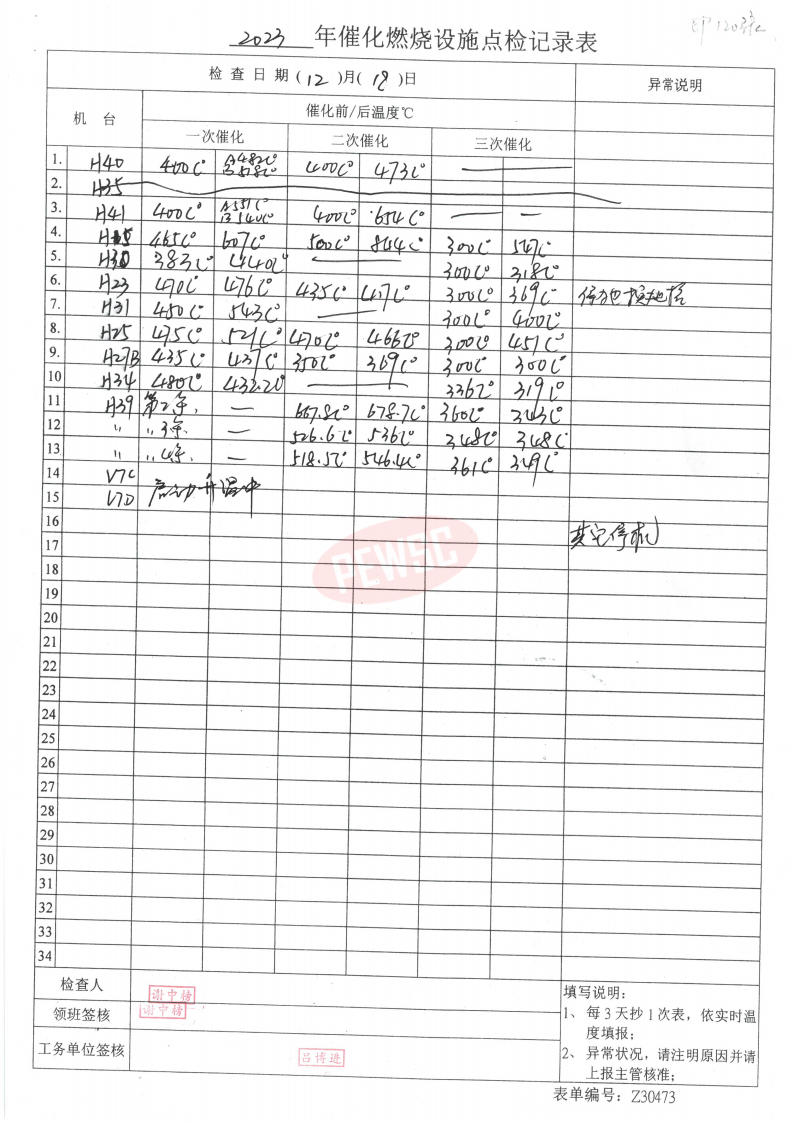 2023 年催化燃烧设施点检记录表
检查日期(12)月(18)日 异常说明
机台 催化前/后温度℃
一次催化 二次催化 三次催化
1. H40 400C° A482C° B518C° 400C° 473C° —
2. H35
3. H41 400C° A551C° B540C° 400C° 654C° — —
4. 465C° 607C° 500C° 844C° 300C° 547C°
5. H30 383C° 440C° — 300C° 318C°
6. H23 470C° 476C° 435C° 417C° 300C° 369C°
7. H31 450C° 543C° — 300C° 400C°
8. H25 475C° 521C° 470C° 466C° 300C° 451C°
9. H27B 435C° 437C° 350C° 369C° 300C° 300C°
10 H34 480C° 432.2C° — 336C° 319C°
11 H39 第2条, — 667.8C° 678.7C° 360C° 343C°
12 〃 〃3条, — 526.6C° 536C° 348C° 348C°
13 〃 〃4条, — 518.5C° 546.4C° 361C° 349C°
14 V7C
15 V7D 启动升温中
16 其它停机
17
PEWSC
18
19
20
21
22
23
24
25
26
27
28
29
30
31
32
33
34
检查人 谢中榜
领班签核 谢中榜
工务单位签核 吕博进
填写说明:
1、每3天抄1次表，依实时温
度填报;
2、异常状况，请注明原因并请
上报主管核准;
表单编号：Z30473